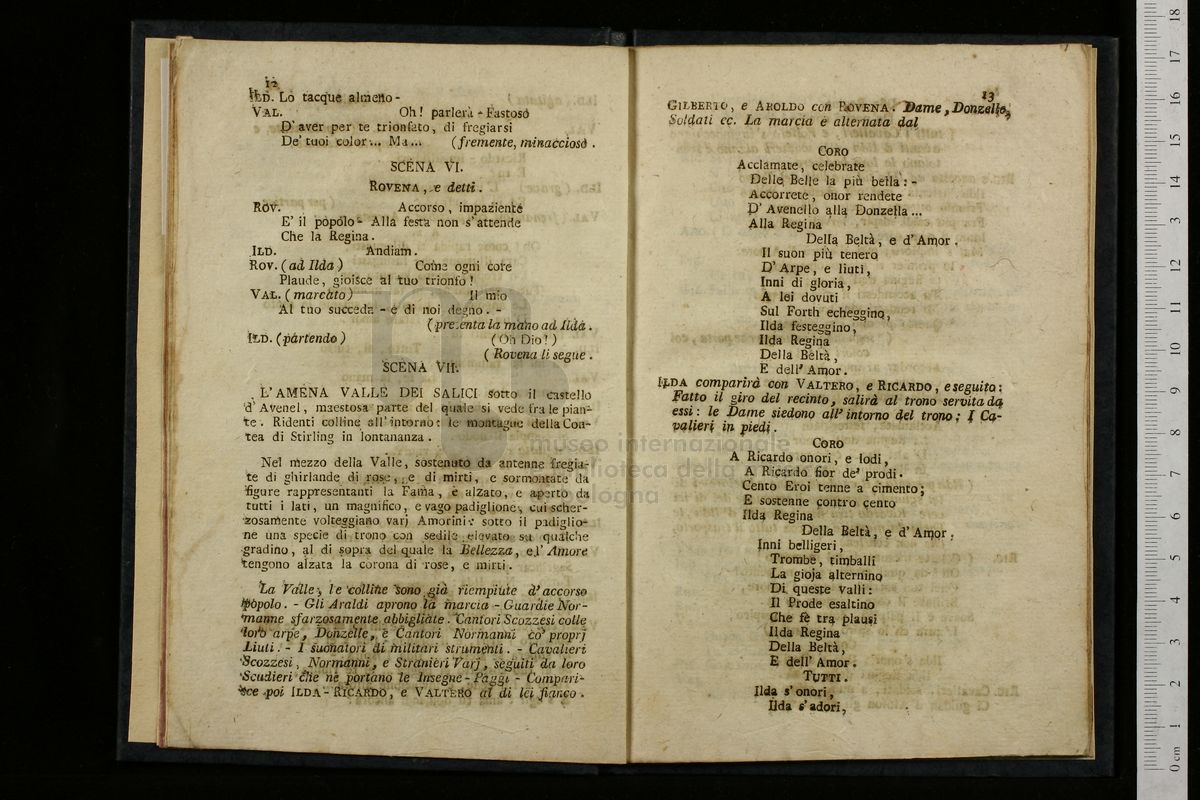 12
ILD. Lo tacque almeno -
VAL. Oh! parlerà - Fastoso
D'aver per te trionfato, di fregiarsi
De' tuoi color... Ma... (fremente, minaccioso.
SCENA VI.
ROVENA, e detti.
ROV. Accorso, impaziente
E' il popolo - Alla festa non s'attende
Che la Regina.
ILD. Andiam.
ROV. (ad Ilda) Come ogni core
Plaude, gioisce al tuo trionfo!
VAL. (marcato) Il mio
Al tuo succeda - e di noi degno. -
(presenta la mano ad Ilda.
ILD. (partendo) (Oh Dio!)
(Rovena li segue.
SCENA VII.
L'AMENA VALLE DEI SALICI sotto il castello
d'Avenel, maestosa parte del quale si vede fra le pian-
te. Ridenti colline all'intorno: le montagne della Con-
tea di Stirling in lontananza.
Nel mezzo della Valle, sostenuto da antenne fregia-
te di ghirlande di rose, e di mirti, e sormontate da
figure rappresentanti la Fama, è alzato, e aperto da
tutti i lati, un magnifico, e vago padiglione, cui scher-
zosamente volteggiano varj Amorini: sotto il padiglio-
ne una specie di trono con sedile elevato su qualche
gradino, al di sopra del quale la Bellezza, e l'Amore
tengono alzata la corona di rose, e mirti.
La Valle, le colline sono già riempiute d'accorso
popolo. - Gli Araldi aprono la marcia - Guardie Nor-
manne sfarzosamente abbigliate. Cantori Scozzesi colle
loro arpe, Donzelle, e Cantori Normanni co' proprj
Liuti. - I suonatori di militari strumenti. - Cavalieri
Scozzesi, Normanni, e Stranieri Varj, seguiti da loro
Scudieri che ne portano le Insegne - Paggi - Compari-
sce poi ILDA - RICARDO, e VALTERO al di lei fianco.
13
GILBERTO, e AROLDO con ROVENA. Dame, Donzelle,
Soldati ec. La marcia è alternata dal
CORO
Acclamate, celebrate
Delle Belle la più bella: -
Accorrete, onor rendete
D'Avenello alla Donzella...
Alla Regina
Della Beltà, e d'Amor.
Il suon più tenero
D'Arpe, e liuti,
Inni di gloria,
A lei dovuti
Sul Forth echeggino,
Ilda festeggino,
Ilda Regina
Della Beltà,
E dell'Amor.
ILDA comparirà con VALTERO, e RICARDO, e seguito:
Fatto il giro del recinto, salirà al trono servita da
essi: le Dame siedono all'intorno del trono: I Ca-
valieri in piedi.
CORO
A Ricardo onori, e lodi,
A Ricardo fior de' prodi.
Cento Eroi tenne a cimento;
E sostenne contro cento
Ilda Regina
Della Beltà, e d'Amor.
Inni belligeri,
Trombe, timballi
La gioja alternino
Di queste Valli:
Il Prode esaltino
Che fè tra plausi
Ilda Regina
Della Beltà,
E dell'Amor.
TUTTI.
Ilda s'onori,
Ilda s'adori,
museo internazionale
biblioteca della
bologna
0 cm 1 2 3 4 5 6 7 8 9 10 11 12 13 14 15 16 17 18